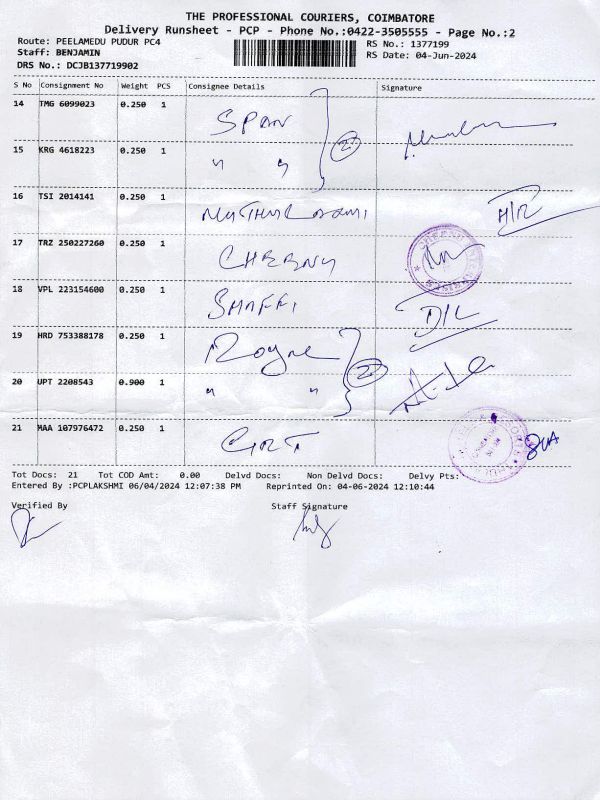 THE PROFESSIONAL COURIERS, COIMBATORE
Delivery Runsheet - PCP - Phone No.:0422-3505555 - Page No.:2
Route: PEELAMEDU PUDUR PC4
RS No.: 1377199
Staff: BENJAMIN
RS Date: 04-Jun-2024
DRS No.: DCJB137719902
S No Consignment No Weight PCS Consignee Details Signature
14 TMG 6099023 0.250 1 SPAN
15 KRG 4618223 0.250 1 " "
2
16 TSI 2014141 0.250 1
17 TRZ 250227260 0.250 1
18 VPL 223154600 0.250 1 SHAFFI
19 HRD 753388178 0.250 1
20 UPT 2208543 0.900 1 " "
2
21 MAA 107976472 0.250 1
Tot Docs: 21 Tot COD Amt: 0.00 Delvd Docs: Non Delvd Docs: Delvy Pts:
Entered By :PCPLAKSHMI 06/04/2024 12:07:38 PM Reprinted On: 04-06-2024 12:10:44
Verified By Staff Signature